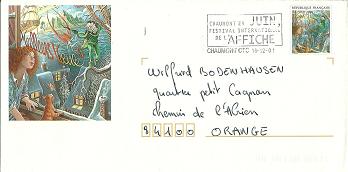 CHAUMONT EN JUIN,
FESTIVAL INTERNATIO
DE L'AFFICHE
CHAUMONT CTD 18-12-01
RÉPUBLIQUE FRANÇAISE
Wilfurd BODENHAUSEN
quartier petit Gagnan
chemin de l'Arien
84100 ORANGE